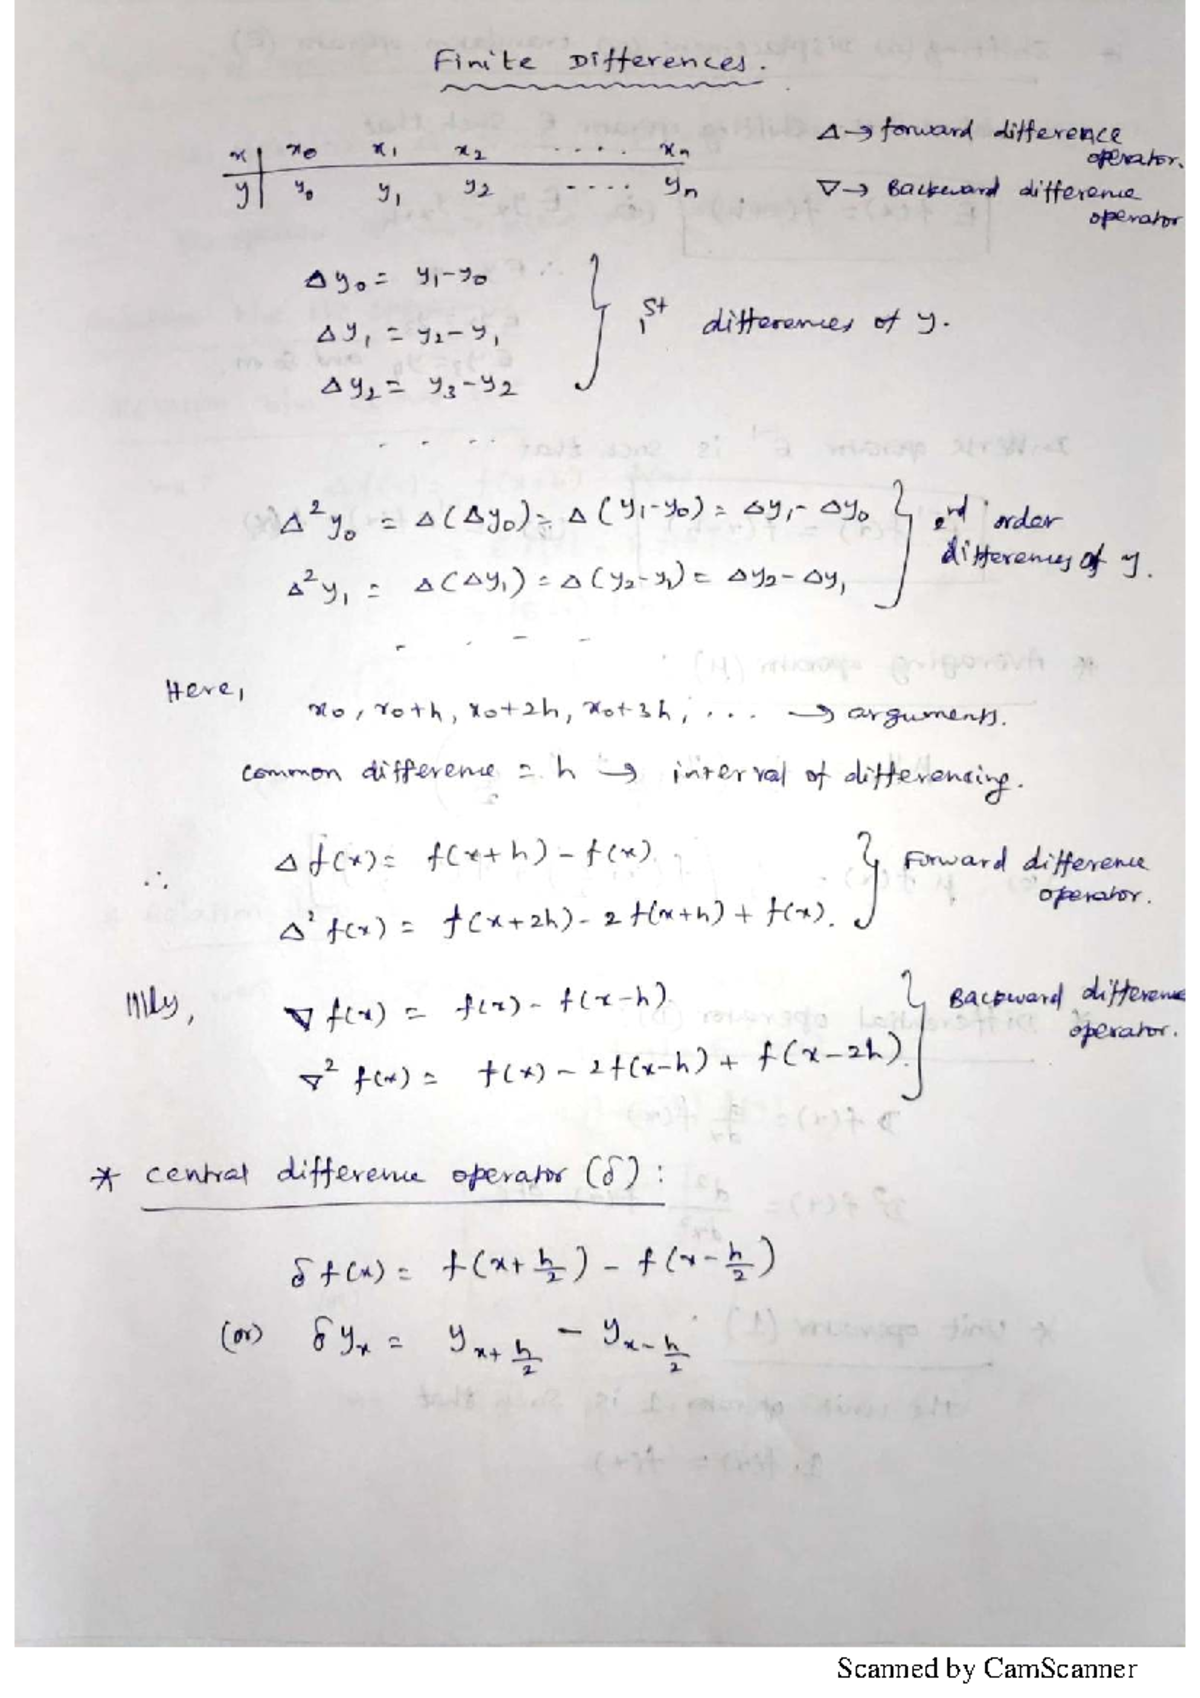 Finite Differences.
Δ → forward difference operator.
∇ → Backward difference operator
x | x₀ x₁ x₂ .... xₙ
y | y₀ y₁ y₂ ---- yₙ
Δy₀ = y₁-y₀
Δy₁ = y₂-y₁
Δy₂ = y₃-y₂
} 1st differences of y.
. . . . .
Δ²y₀ = Δ(Δy₀) = Δ(y₁-y₀) = Δy₁-Δy₀
Δ²y₁ = Δ(Δy₁) = Δ(y₂-y₁) = Δy₂-Δy₁
} 2nd order differences of y.
- . - -
Here,
x₀, x₀+h, x₀+2h, x₀+3h, ... → arguments.
common difference = h → interval of differencing.
∴ Δf(x) = f(x+h) - f(x).
Δ²f(x) = f(x+2h) - 2f(x+h) + f(x).
} Forward difference operator.
IIIly, ∇f(x) = f(x) - f(x-h).
∇²f(x) = f(x) - 2f(x-h) + f(x-2h).
} Backward difference operator.
* central difference operator (δ) :
δf(x) = f(x+h/2) - f(x-h/2)
(or) δyₓ = y_{x+h/2} - y_{x-h/2}
Scanned by CamScanner